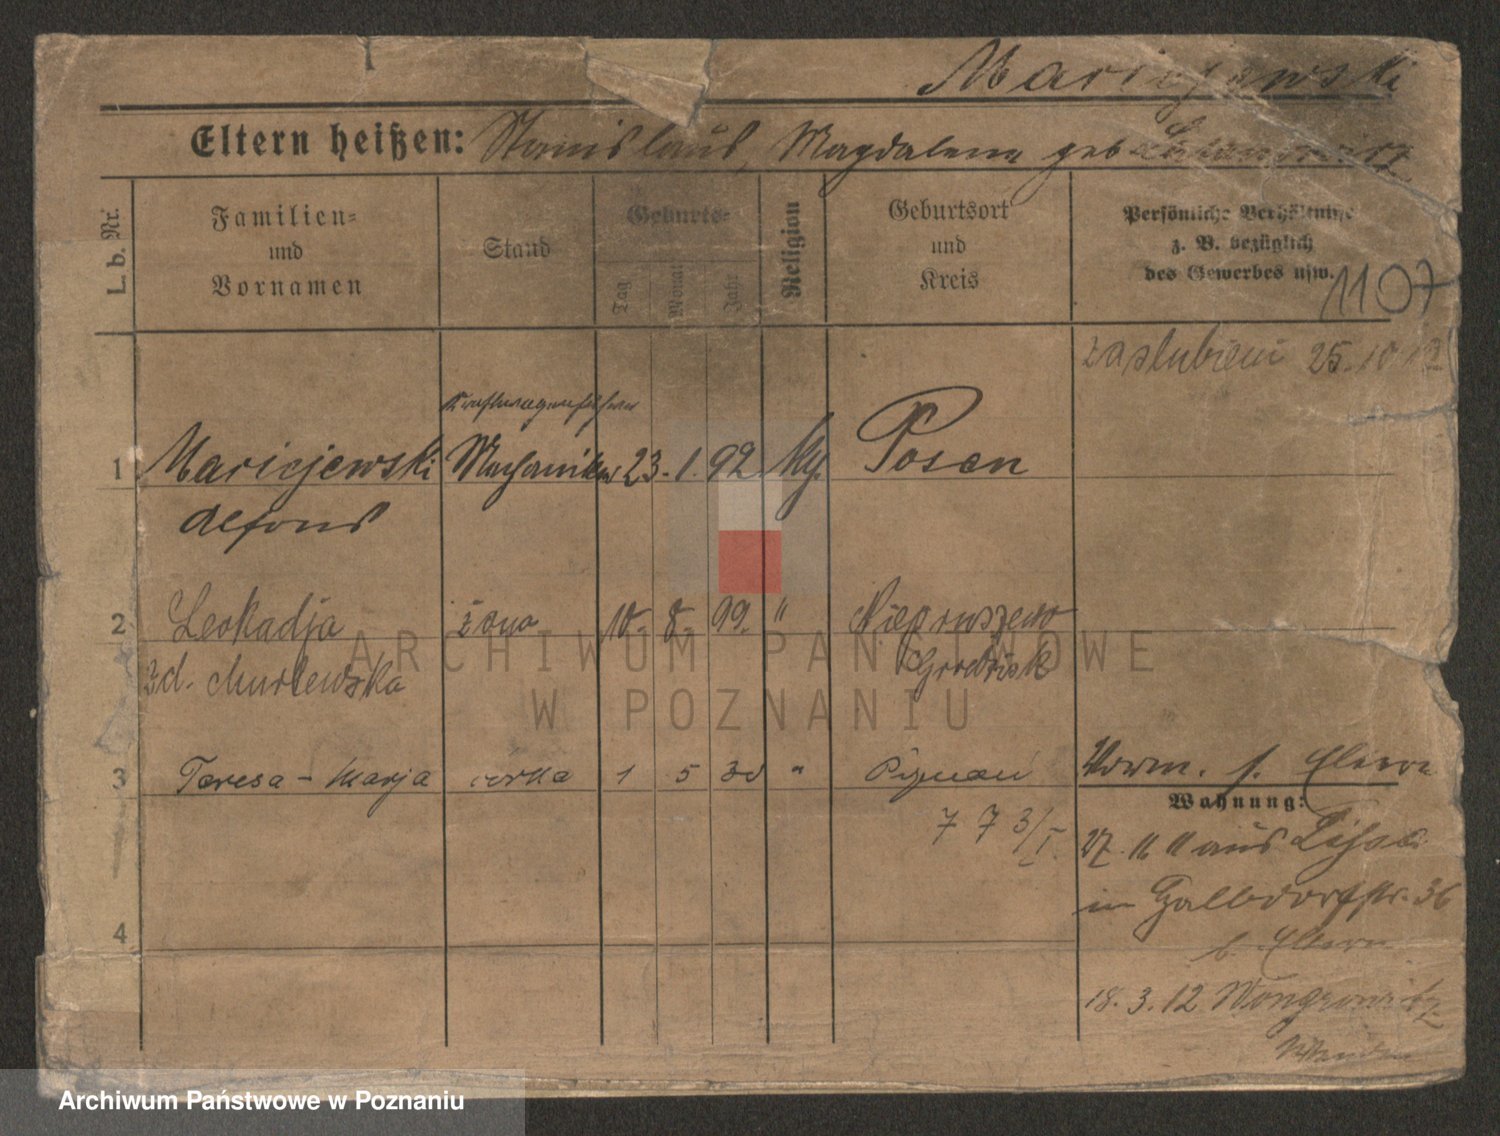 Maricjewski
Eltern heißen: Stanislaus, Magdalena geb
L. b. Nr.
Familien- und Vornamen
Stand
Geburts-
Tag
Monat
Jahr
Religion
Geburtsort und Kreis
Persönliche Verhältnisse z. B. bezüglich des Gewerbes usw.
1107
zaslubieni 25.10.
Kraftwagenführer
1 Maricjewski Mechaniker 23. 1. 92. Posen
Alfons
2 Leokadja żona 10. 8. 99. " Niepruszewo
zd. Murlewska Grodzisk
3 Teresa - Marja córka 1 5 30 " Poznań
Vorm. s. Eltern
773/I
Wohnung:
27. 11. 11 aus
in Gallwdorfstr. 36
b. Eltern
4
18. 3. 12 Wongrowitz
ARCHIWUM PAŃSTWOWE
W POZNANIU
Archiwum Państwowe w Poznaniu